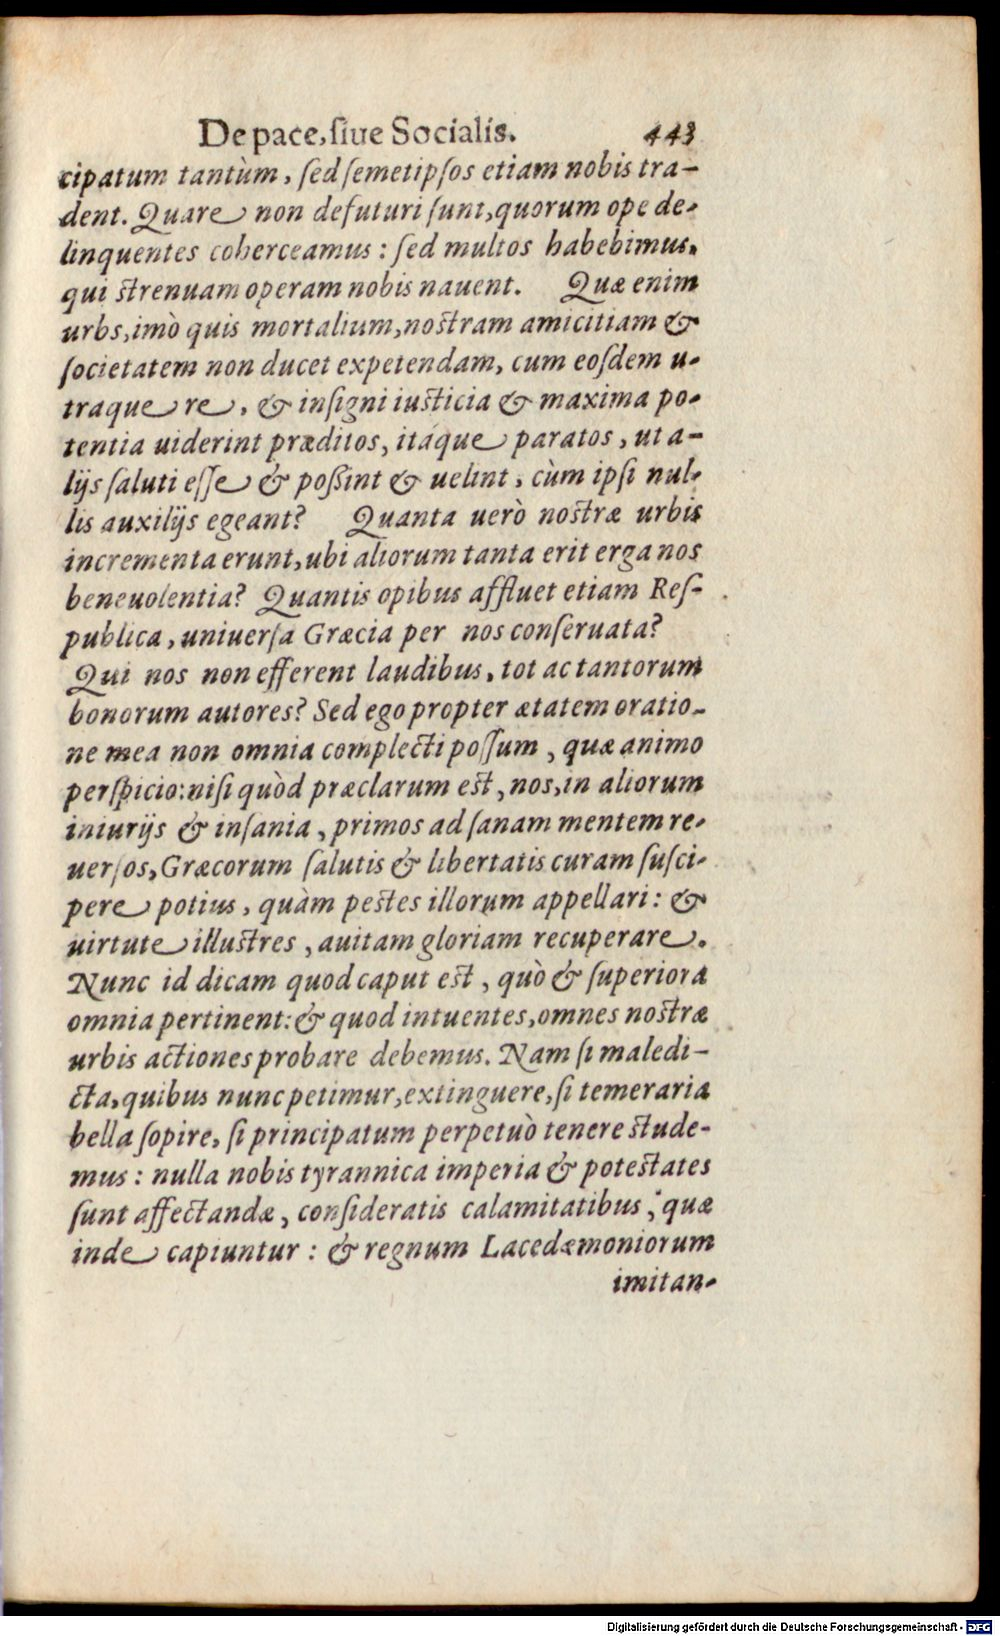 De pace, ſiue Socialis. 443
cipatum tantùm, ſed ſemetipſos etiam nobis tra-
dent. Quare non defuturi ſunt, quorum ope de-
linquentes coherceamus: ſed multos habebimus,
qui strenuam operam nobis nauent. Quæ enim
urbs, imò quis mortalium, nostram amicitiam &
ſocietatem non ducet expetendam, cum eoſdem u-
traque re, & inſigni iusticia & maxima po-
tentia uiderint præditos, itáque paratos, ut a-
lijs ſaluti eſſe & poßint & uelint, cùm ipſi nul-
lis auxilijs egeant? Quanta uerò nostræ urbis
incrementa erunt, ubi aliorum tanta erit erga nos
beneuolentia? Quantis opibus affluet etiam Reſ-
publica, uniuerſa Græcia per nos conſeruata?
Qui nos non efferent laudibus, tot ac tantorum
bonorum autores? Sed ego propter ætatem oratio-
ne mea non omnia complecti poſſum, quæ animo
perſpicio: niſi quòd præclarum est, nos, in aliorum
iniurijs & inſania, primos ad ſanam mentem re-
uerſos, Græcorum ſalutis & libertatis curam ſuſci-
pere potius, quàm pestes illorum appellari: &
uirtute illustres, auitam gloriam recuperare.
Nunc id dicam quod caput est, quò & ſuperiora
omnia pertinent: & quod intuentes, omnes nostræ
urbis actiones probare debemus. Nam ſi maledi-
cta, quibus nunc petimur, extinguere, ſi temeraria
bella ſopire, ſi principatum perpetuò tenere stude-
mus: nulla nobis tyrannica imperia & potestates
ſunt affectandæ, conſideratis calamitatibus, quæ
inde capiuntur: & regnum Lacedæmoniorum
imitan-
Digitalisierung gefördert durch die Deutsche Forschungsgemeinschaft - DFG